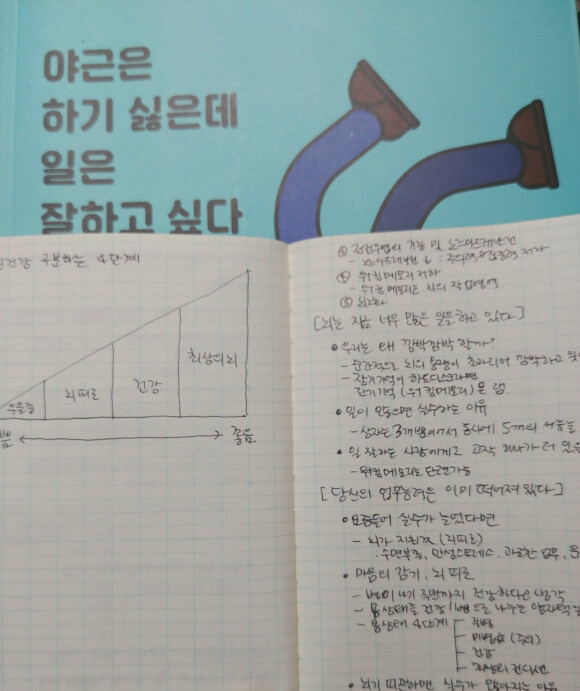 야근은
하기 싫은데
일은
잘하고 싶다
건강 구분하는 4단계
우울증
뇌피로
건강
최상의 뇌
좋음
④ 워킹메모리 저하
- 워킹메모리는 뇌의 작업영역.
[뇌는 지금 너무 많은 일을 하고 있다]
• 우리는 왜 깜박깜박 할까?
- 순간적으로 뇌의 용량이 초과되어 깜박하고
- 장기기억이 하드디스크라면
단기기억 (워킹메모리)은 램.
• 일이 많으면 실수하는 이유
- 상자는 3개뿐이어서 동시에 5개의 서류를
• 일 잘하는 사람에게는 고작 하나가 더 있을
- 워킹메모리는 단련가능
[당신의 업무능력은 이미 떨어져 있다]
• 요즘들어 실수가 늘었다면
- 뇌가 지친것 (뇌피로)
: 수면부족, 만성스트레스, 과로한 업무,
• 마음의 감기, 뇌 피로
- 병이 나기 직전까지 건강하다고 생각
- 몸상태를 건강/병으로 나누는
- 몸상태 4단계
질병
미병 (주의)
건강
최상의 컨디션
• 뇌가 피곤하면 실수가 많아지는 이유